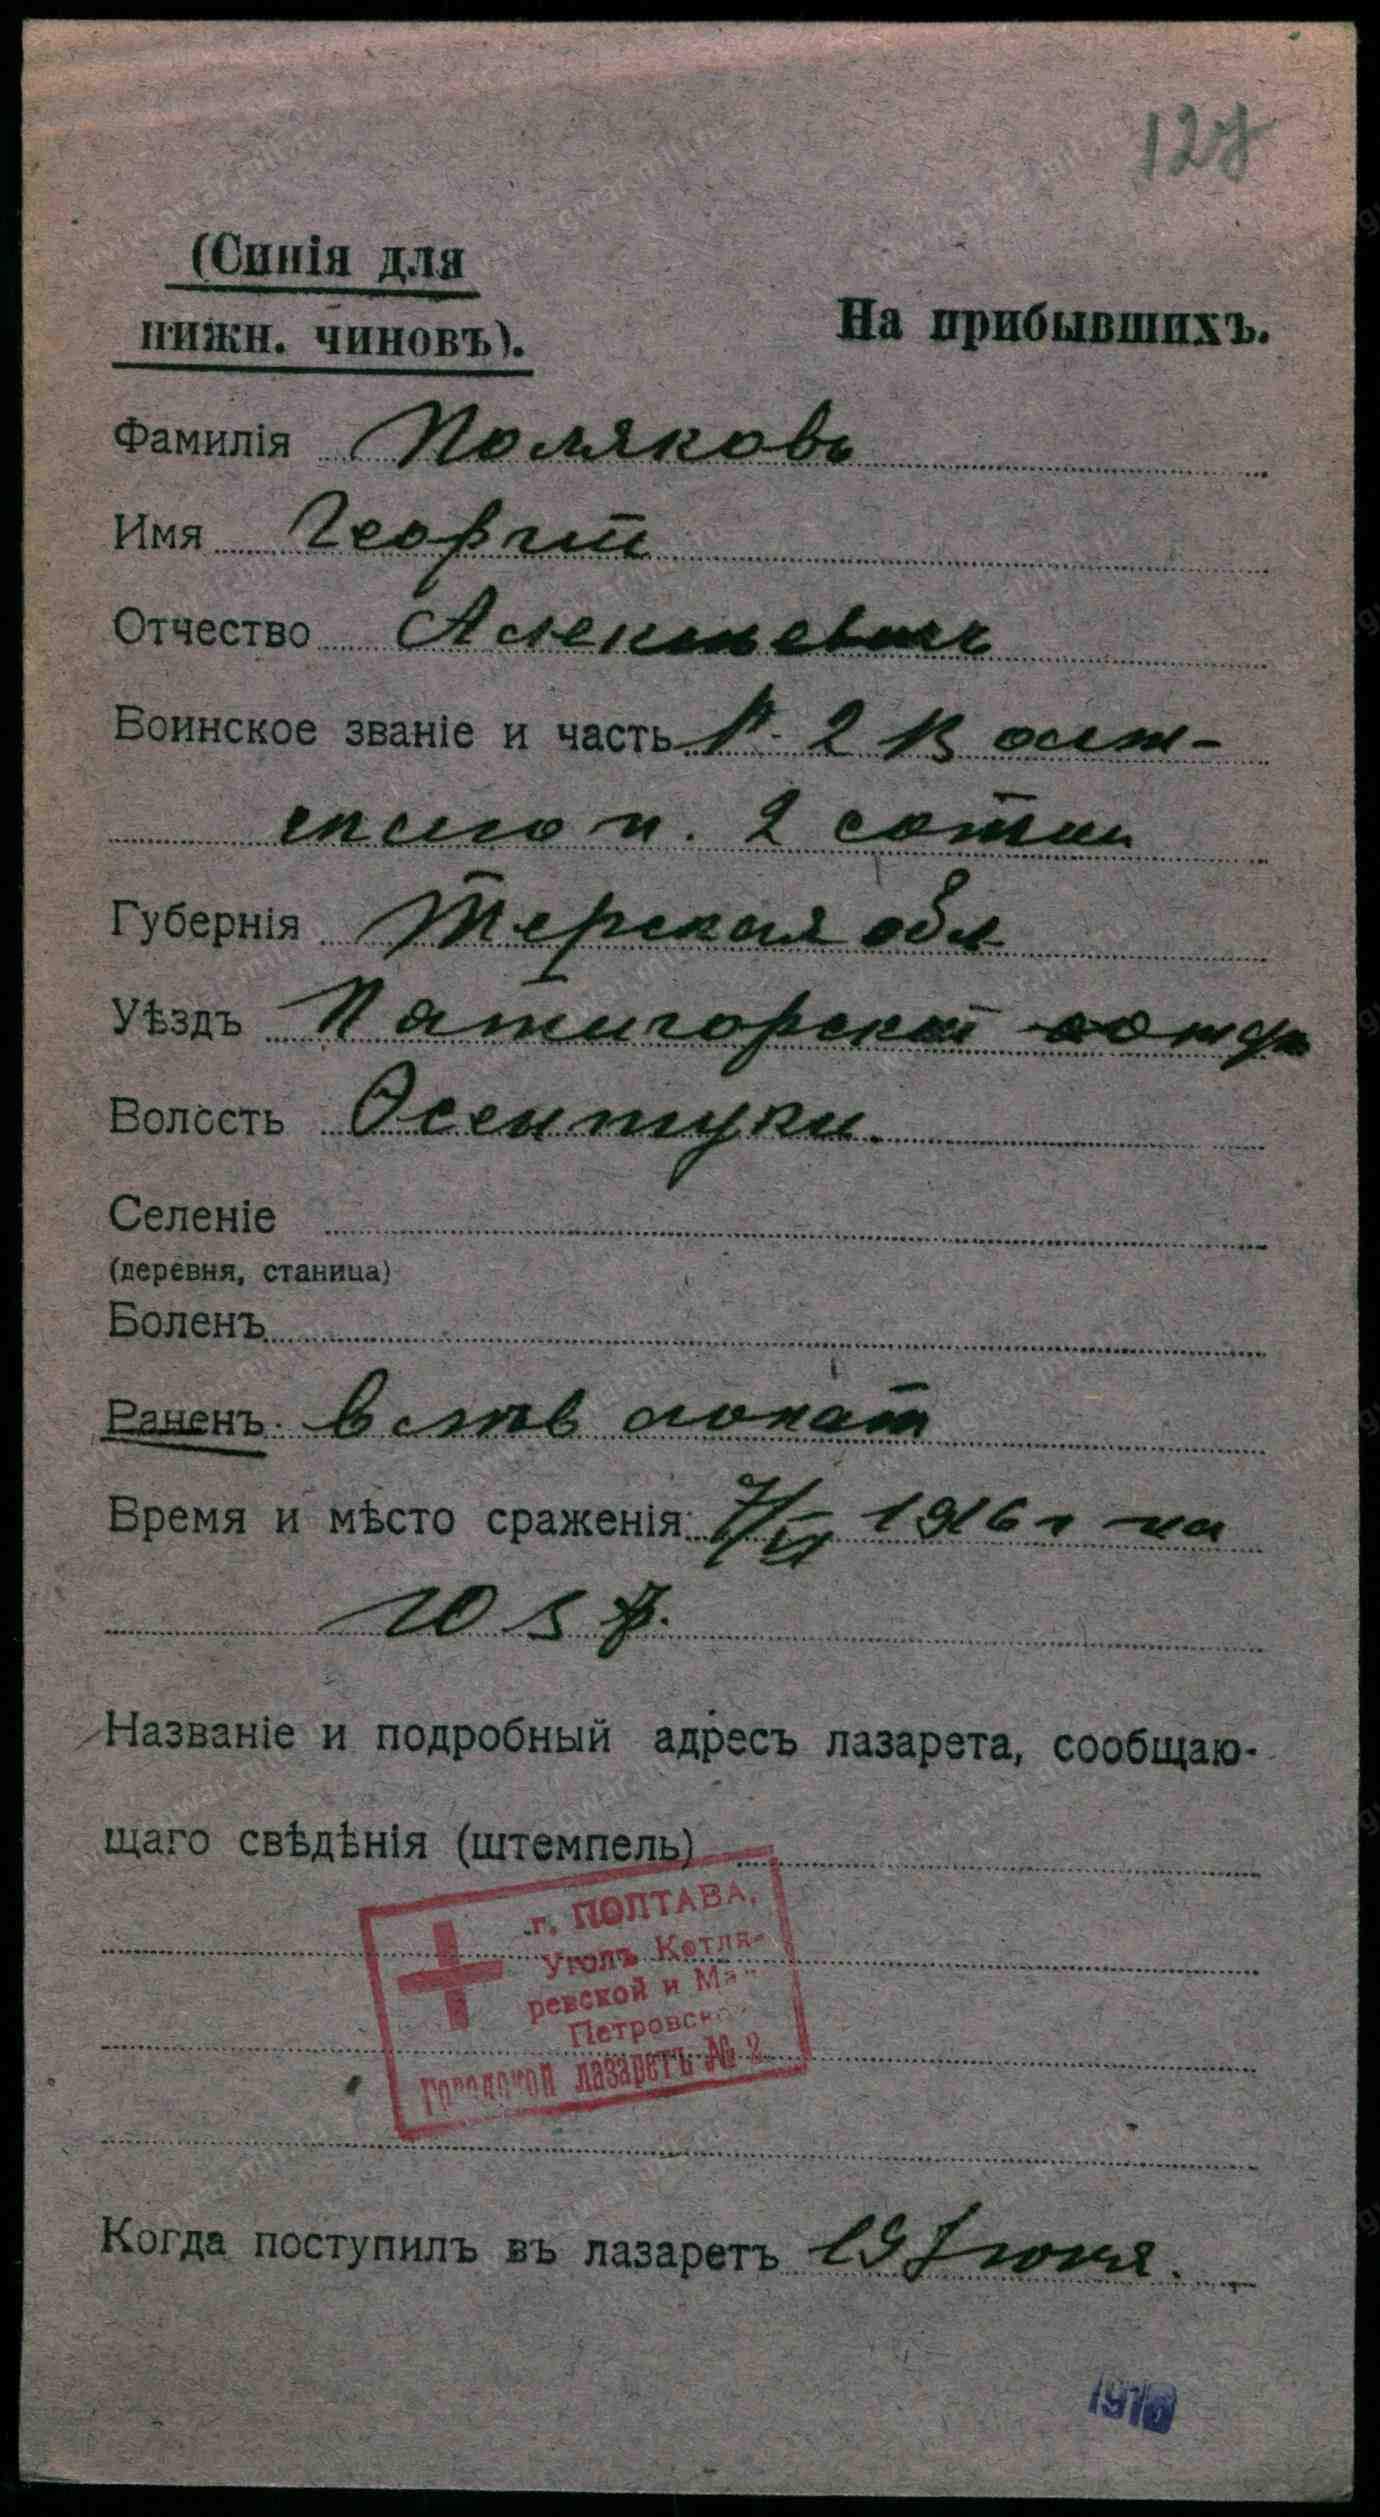 127
(Синія для
нижн. чиновъ).
На прибывшихъ.
Фамилія Поляковъ
Имя Георгій
Отчество Алексѣевичъ
Воинское званіе и часть 2 Волж-
скаго п. 2 сотни
Губернія Терская обл
Уѣздъ Пятигорскій отдѣл
Волость Осентуки.
Селеніе
(деревня, станица)
Боленъ
Раненъ в лѣв лопат
Время и мѣсто сраженія 7/VI 1916 г на
Ю З ф.
Названіе и подробный адресъ лазарета, сообщаю-
щаго свѣдѣнія (штемпель)
г. ПОЛТАВА,
Уголъ Котля-
ревской и
Петровской
Городской лазаретъ № 2
Когда поступилъ въ лазаретъ 19 Іюня.
1916